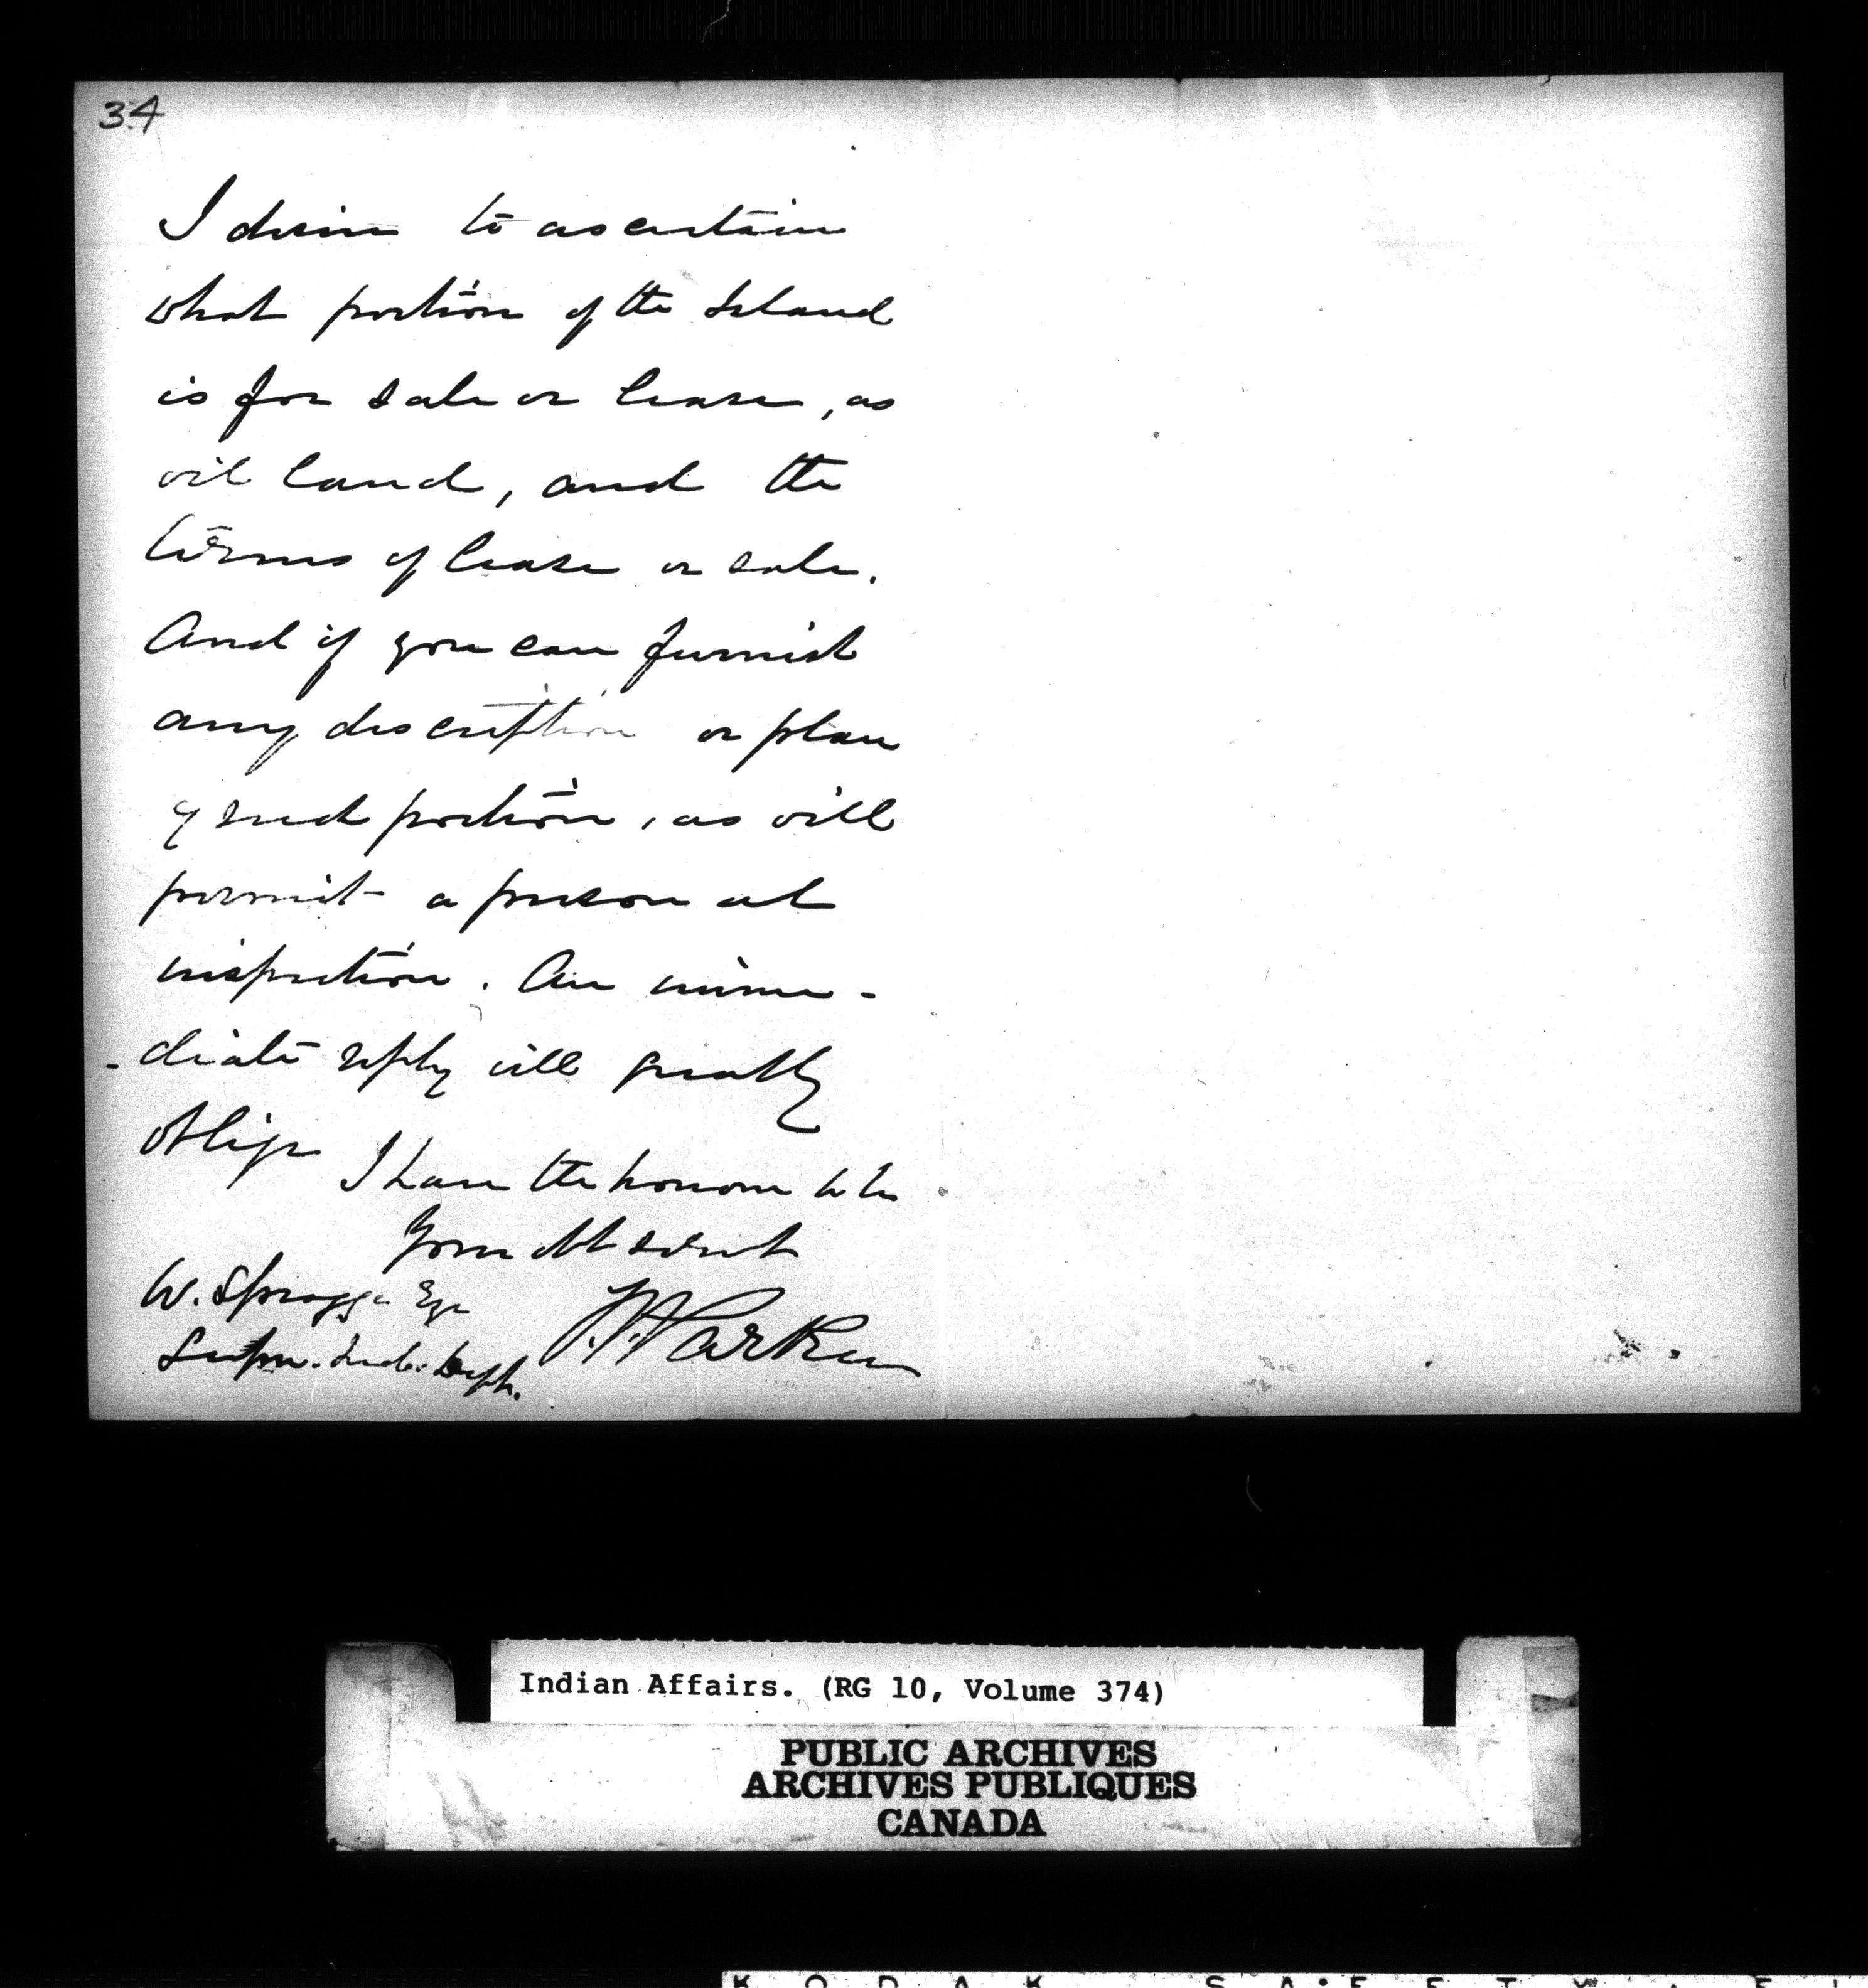 34
I desire to ascertain
what portion of the Island
is for sale or lease, as
oil land, and the
terms of lease or sale.
And if you can furnish
any description or plan
of such portion, as will
permit a personal
inspection. An imme-
-diate reply will greatly
oblige
I have the honour to be
Your obt servt
W. Spragge Esqr
Parker
Supn. Ind. Dept.
Indian Affairs. (RG 10, Volume 374)
PUBLIC ARCHIVES
ARCHIVES PUBLIQUES
CANADA
KODAK SAFETY